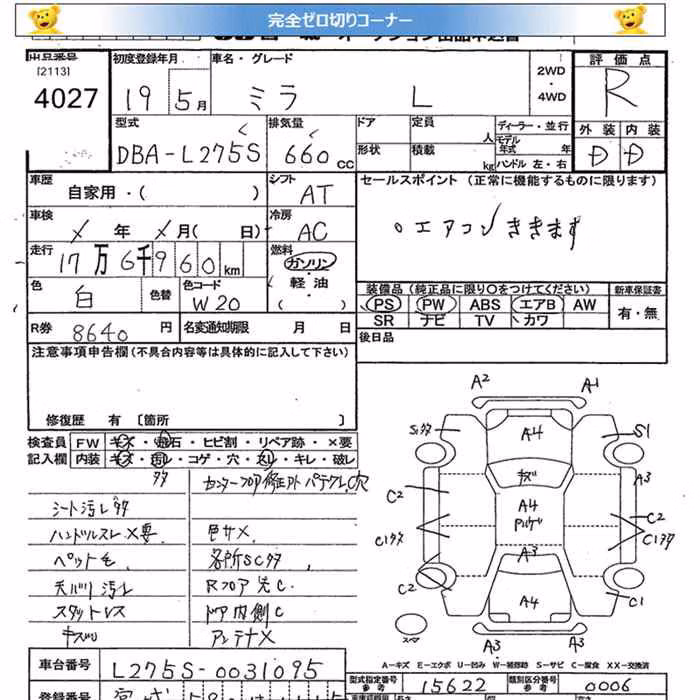 完全ゼロ切りコーナー
出品番号 [2113] 4027
初度登録年月 19 5月
車名・グレード ミラ L
2WD ・ 4WD
評価点 R
外装 内装
型式 DBA-L275S
排気量 660cc
ドア 形状
定員 人 積載 kg
ディーラー・並行
モデル年式 年
ハンドル 左・右
車歴 自家用・( )
シフト AT
セールスポイント (正常に機能するものに限ります)
○エアコンききます
車検 年 月( 日)
冷房 AC
走行 17万6千960km
燃料 ガソリン・軽油・( )
色 白 色替
色コード W20
装備品 (純正品に限り○をつけてください)
新車保証書 有・無
PS PW ABS エアB AW
SR ナビ TV カワ
R券 8640円
名変通知期限 月 日
後日品
注意事項申告欄(不具合内容等は具体的に記入して下さい)
修復歴 有 [箇所 ]
検査員記入欄
FW キズ・飛石・ヒビ割・リペア跡・×要
内装 キズ・汚レ・コゲ・穴・スレ・キレ・破レ
シート汚レタタ
ハンドルスレ×要
ペット毛
天バリ汚レ
スタットレス
色サメ
各所SCタタ
ドア内側C
アンテナX
A2 A1
A4 S1
A3
C2 キズ C2
A4
A3
C2 A4 C1
A3 A3
スペア
A-キズ E-エクボ U-凹み W-補修跡 S-サビ C-腐食 XX-交換済
車台番号 L275S-0031095
型式指定番号 参考 15622
類別区分番号 参考 0006
登録番号